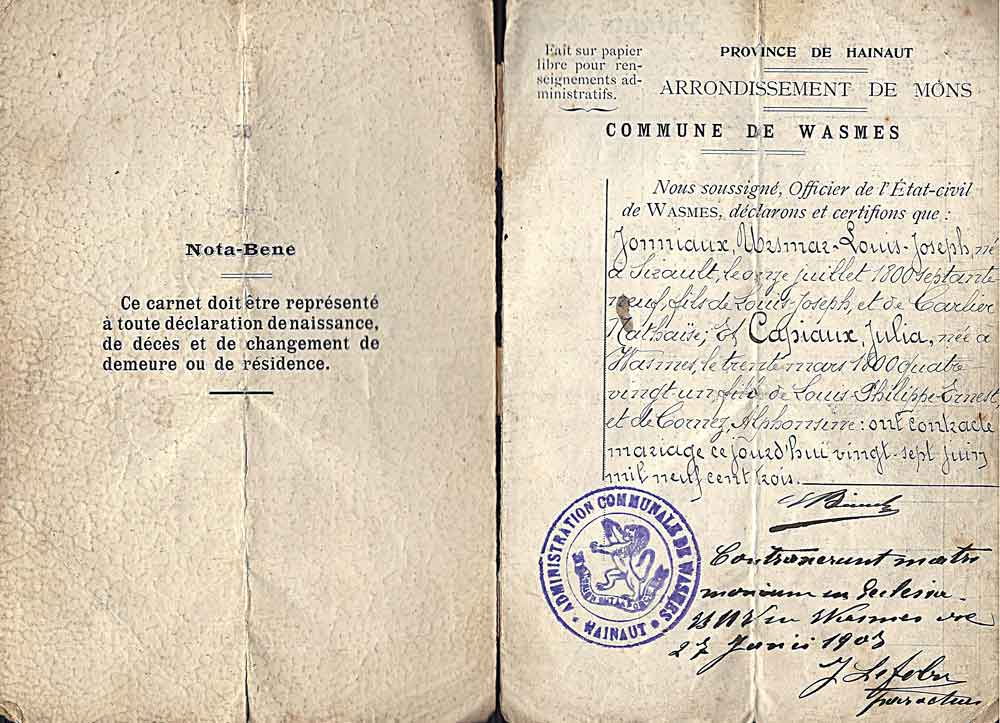 Nota-Bene
Ce carnet doit être représenté
à toute déclaration de naissance,
de décès et de changement de
demeure ou de résidence.
Fait sur papier
libre pour ren-
seignements ad-
ministratifs.
PROVINCE DE HAINAUT
ARRONDISSEMENT DE MONS
COMMUNE DE WASMES
Nous soussigné, Officier de l'État-civil
de WASMES, déclarons et certifions que :
Jonniaux, Ursmar-Louis-Joseph, né
à Sirault, le onze juillet 1800 septante
neuf, fils de Louis-Joseph, et de Carlier
Et Capiaux, Julia, née à
Wasmes, le trente mars 1800 quatre
vingt-un fille de Louis-Philippe-Ernest
et de Cornez, Alphonsine : ont contracté
mariage ce jourd'hui vingt-sept juin
mil neuf cent trois.
ADMINISTRATION COMMUNALE DE WASMES
HAINAUT
Contraxerunt matri
monium in Ecclesia
Wasmes
27 1903
J Lefebv